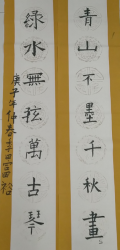 青山不墨千秋畫
綠水無弦萬古琴
庚子年仲春